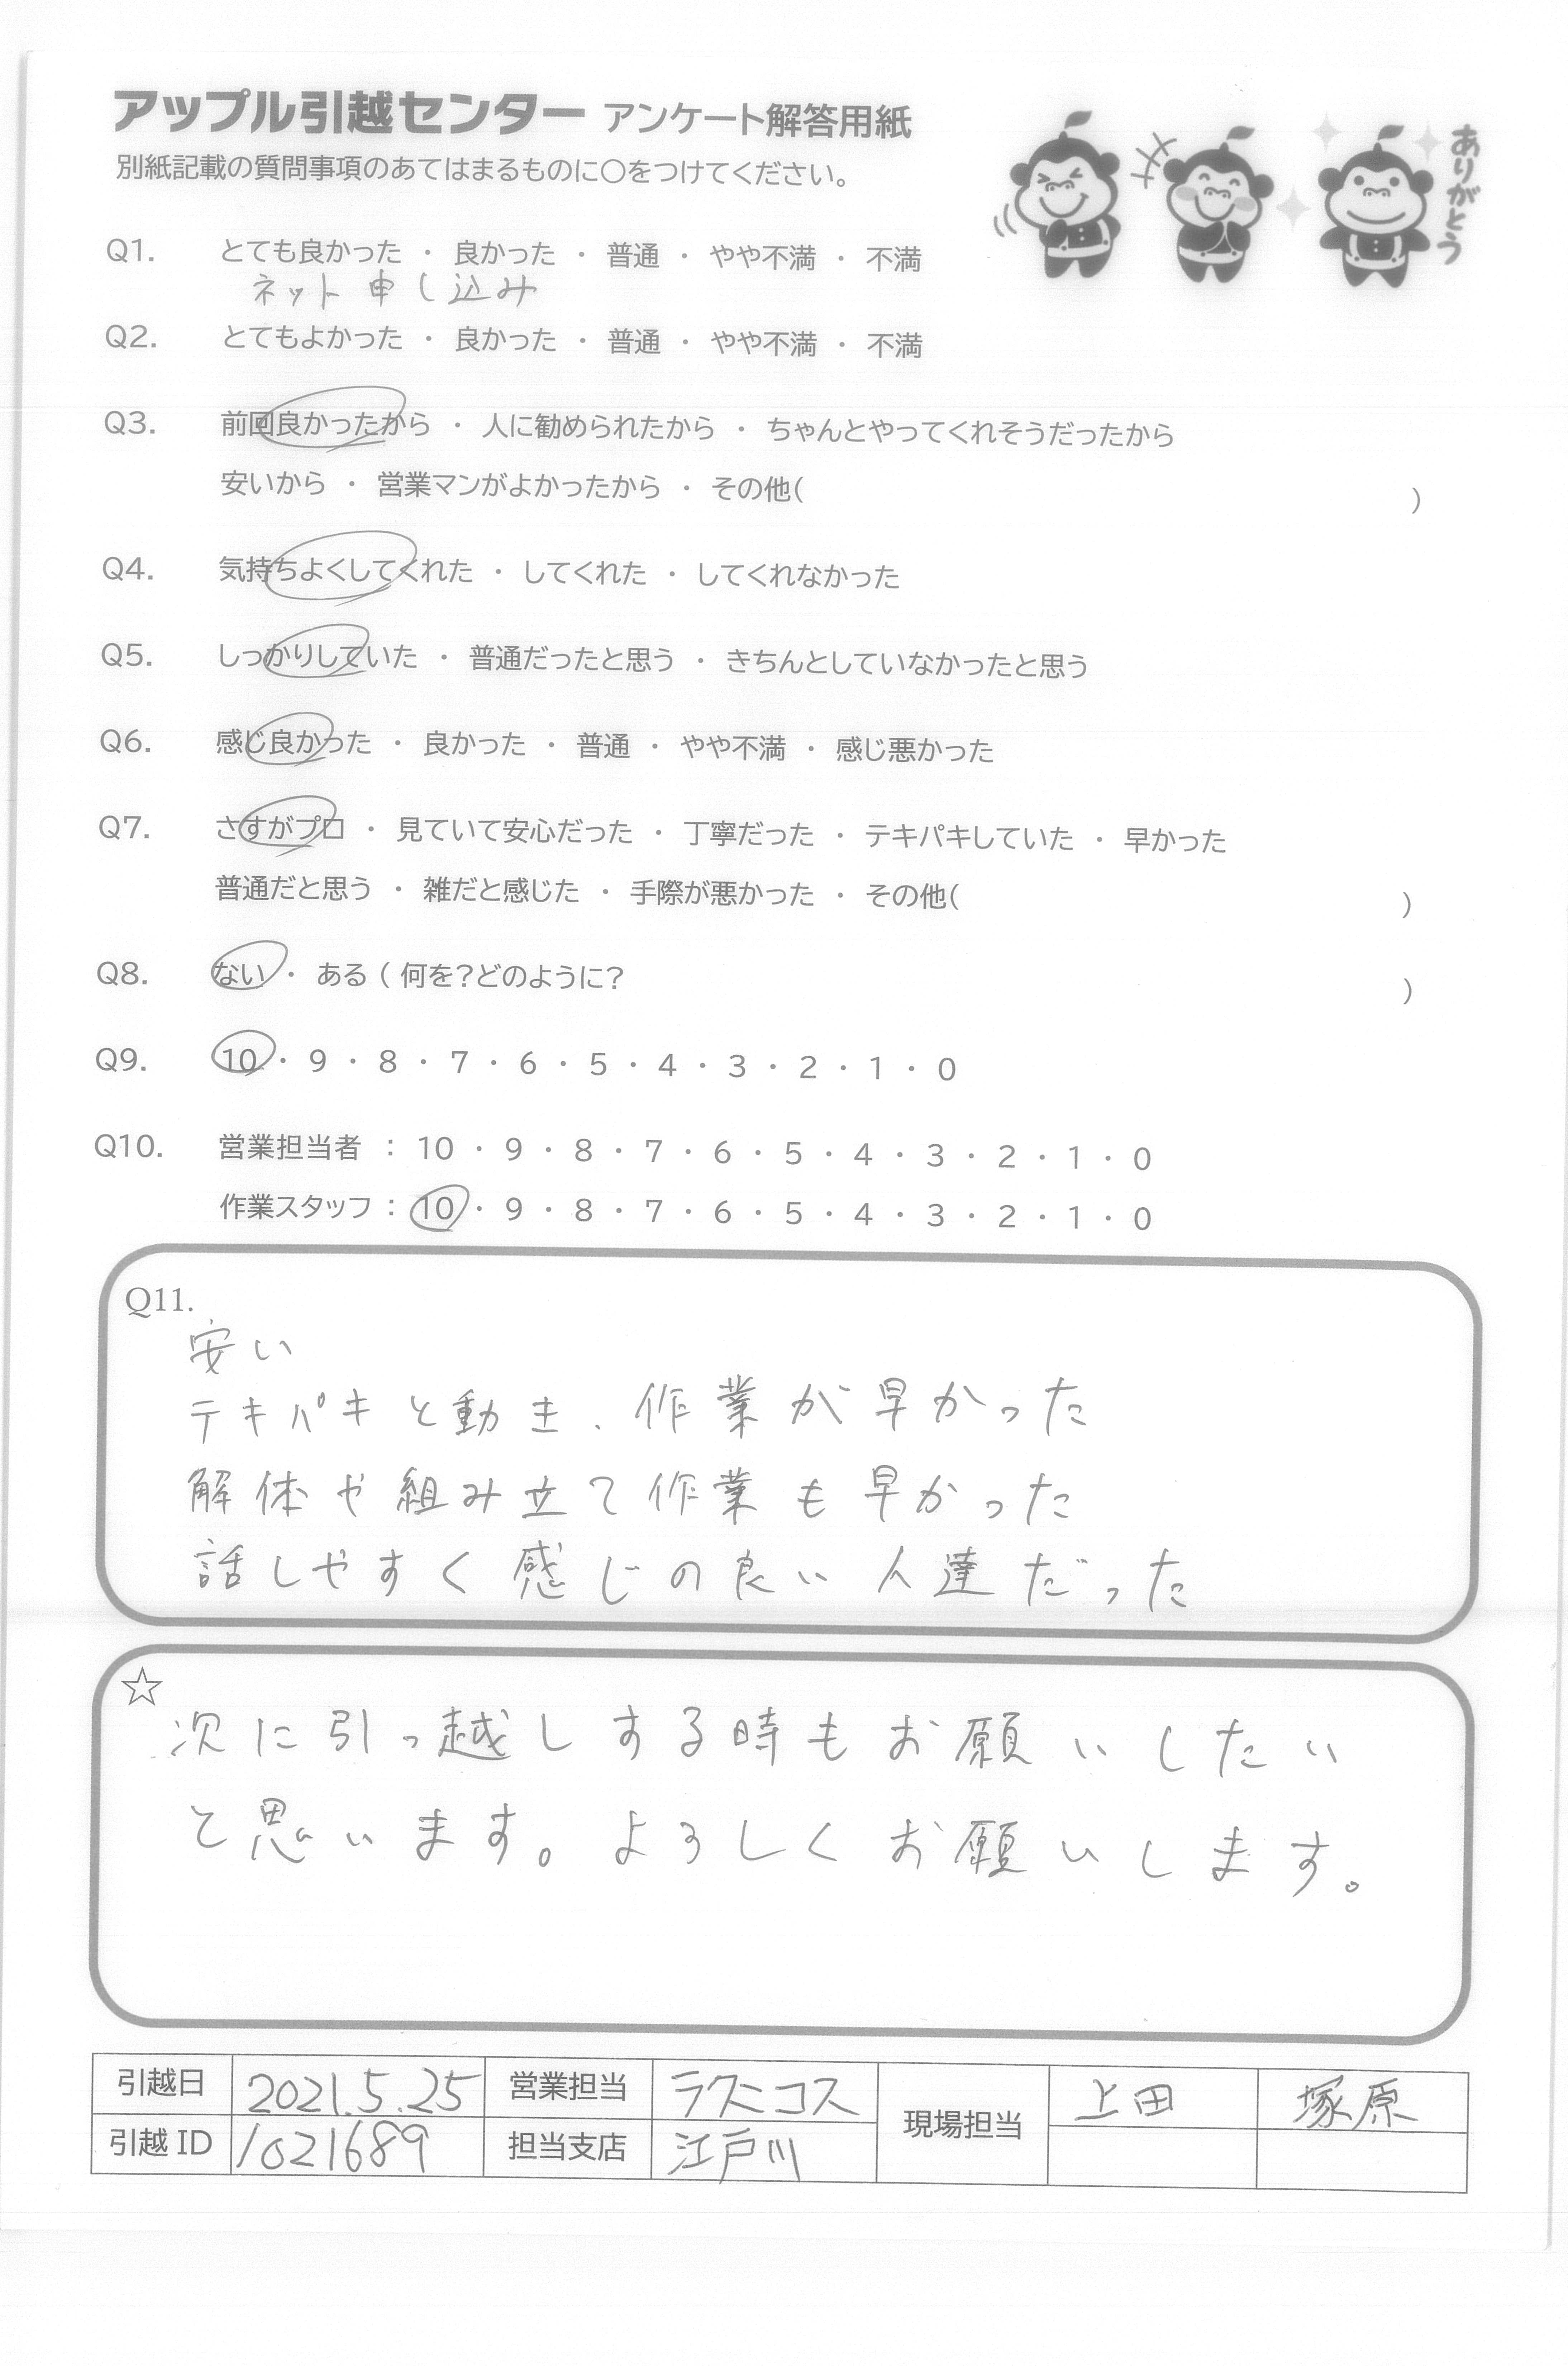 アップル引越センター アンケート解答用紙
別紙記載の質問事項のあてはまるものに〇をつけてください。
ありがとう
Q1. とても良かった ・ 良かった ・ 普通 ・ やや不満 ・ 不満
ネット申し込み
Q2. とてもよかった ・ 良かった ・ 普通 ・ やや不満 ・ 不満
Q3. 前回良かったから ・ 人に勧められたから ・ ちゃんとやってくれそうだったから
安いから ・ 営業マンがよかったから ・ その他( )
Q4. 気持ちよくしてくれた ・ してくれた ・ してくれなかった
Q5. しっかりしていた ・ 普通だったと思う ・ きちんとしていなかったと思う
Q6. 感じ良かった ・ 良かった ・ 普通 ・ やや不満 ・ 感じ悪かった
Q7. さすがプロ ・ 見ていて安心だった ・ 丁寧だった ・ テキパキしていた ・ 早かった
普通だと思う ・ 雑だと感じた ・ 手際が悪かった ・ その他( )
Q8. ない ・ ある ( 何を?どのように? )
Q9. 10 ・ 9 ・ 8 ・ 7 ・ 6 ・ 5 ・ 4 ・ 3 ・ 2 ・ 1 ・ 0
Q10. 営業担当者 : 10 ・ 9 ・ 8 ・ 7 ・ 6 ・ 5 ・ 4 ・ 3 ・ 2 ・ 1 ・ 0
作業スタッフ : 10 ・ 9 ・ 8 ・ 7 ・ 6 ・ 5 ・ 4 ・ 3 ・ 2 ・ 1 ・ 0
Q11.
安い
テキパキと動き、作業が早かった
解体や組み立て作業も早かった
話しやすく感じの良い人達だった
☆
次に引っ越しする時もお願いしたい
と思います。よろしくお願いします。
引越日 2021.5.25 営業担当 ラクニコス 現場担当 上田 塚原
引越 ID 1021689 担当支店 江戸川